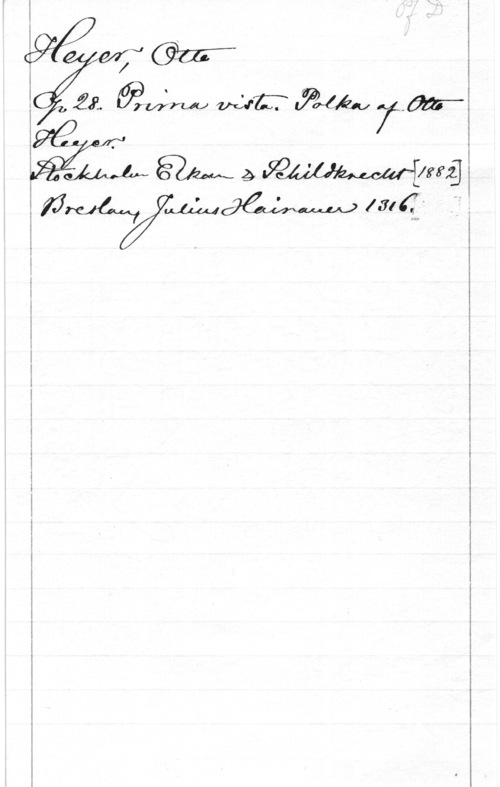 Pf D
Heyer, Otto
Op 28. Prima vista. Polka af Otto
Heyer.
Stockholm Elkan & Schildknecht [1882]
Breslau, Julius Hainauer 1316.